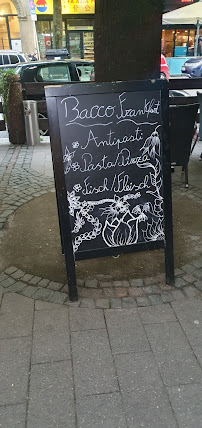 Bacco Frankfurt
Antipasti
Pasta/Pizza
Fisch/Fleisch